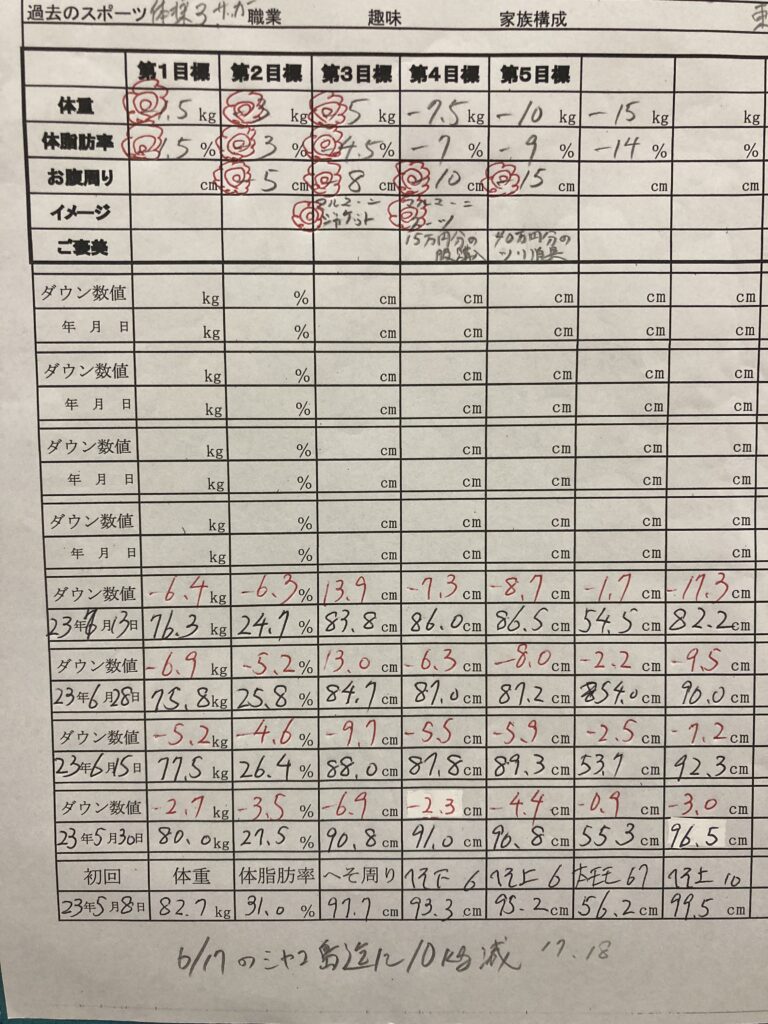 過去のスポーツ 体操 サッカー 職業 趣味 家族構成
第1目標 第2目標 第3目標 第4目標 第5目標
体重 .5 kg 3 kg 5 kg -7.5 kg -10 kg -15 kg kg
体脂肪率 1.5 % 3 % 4.5 % -7 % -9 % -14 % %
お腹周り cm -5 cm -8 cm -10 cm -15 cm cm cm
イメージ アルマーニ ジャケット アルマーニ スーツ
ご褒美 15万円分の 40万円分の
ダウン数値 kg % cm cm cm cm cm
年 月 日 kg % cm cm cm cm cm
ダウン数値 kg % cm cm cm cm cm
年 月 日 kg % cm cm cm cm cm
ダウン数値 kg % cm cm cm cm cm
年 月 日 kg % cm cm cm cm cm
ダウン数値 kg % cm cm cm cm cm
年 月 日 kg % cm cm cm cm cm
ダウン数値 -6.4 kg -6.3 % 13.9 cm -7.3 cm -8.7 cm -1.7 cm -17.3 cm
23年7月13日 76.3 kg 24.7 % 83.8 cm 86.0 cm 86.5 cm 54.5 cm 82.2 cm
ダウン数値 -6.9 kg -5.2 % 13.0 cm -6.3 cm -8.0 cm -2.2 cm -9.5 cm
23年6月28日 75.8 kg 25.8 % 84.7 cm 87.0 cm 87.2 cm 54.0 cm 90.0 cm
ダウン数値 -5.2 kg -4.6 % -9.7 cm -5.5 cm -5.9 cm -2.5 cm -7.2 cm
23年6月15日 77.5 kg 26.4 % 88.0 cm 87.8 cm 89.3 cm 53.7 cm 92.3 cm
ダウン数値 -2.7 kg -3.5 % -6.9 cm -2.3 cm -4.4 cm -0.9 cm -3.0 cm
23年5月30日 80.0 kg 27.5 % 90.8 cm 91.0 cm 90.8 cm 55.3 cm 96.5 cm
初回 体重 体脂肪率 へそ周り へそ下 6 へそ上 6 へそ上 10
23年5月8日 82.7 kg 31.0 % 97.7 cm 93.3 cm 95.2 cm 56.2 cm 99.5 cm
6/17 の 迄に 10kg減 17.18